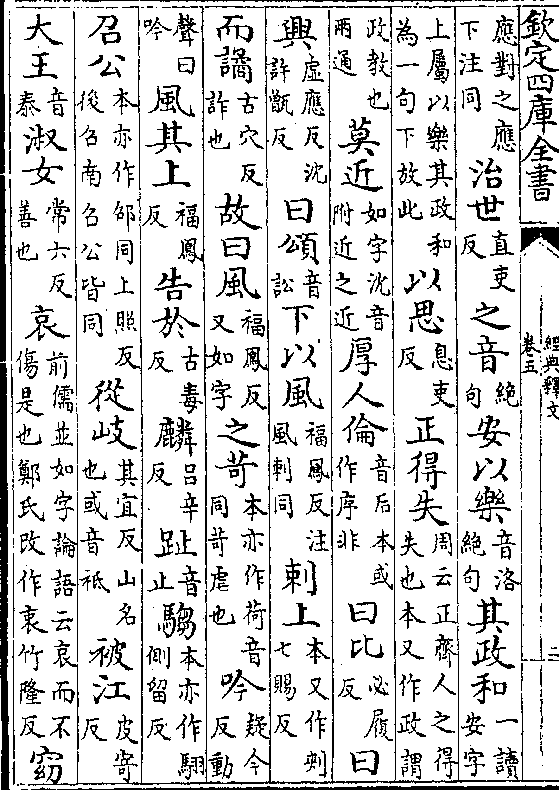 欽定四庫全書 經典釋文 卷五 二
應對之應下注同 治世直吏反 之音絕句 安以樂音洛絕句 其政和一讀安字
上屬以樂其政和為一句下放此 以思息吏反 正得失周云正齊人之得失也本又作政謂
政教也兩通 莫近如字沈音附近之近 厚人倫音后本或作序非 曰比必履反 曰
興虛應反沈許甑反 曰頌音訟 下以風福鳳反注風刺同 刺上本又作刾七賜反
而譎古穴反詐也 故曰風福鳳反又如字 之苛本亦作荷音同苛虐也 吟疑今反動
聲曰吟 風其上福鳳反 告於古毒反 麟呂辛反 趾音止 騶本亦作側留反
召公本亦作邵同上照反後召南召公皆同 從岐其宜反山名也或音祗 被江皮寄反
大王音泰 淑女常六反善也 哀前儒並如字論語云哀而不傷是也鄭氏改作衷竹隆反 窈